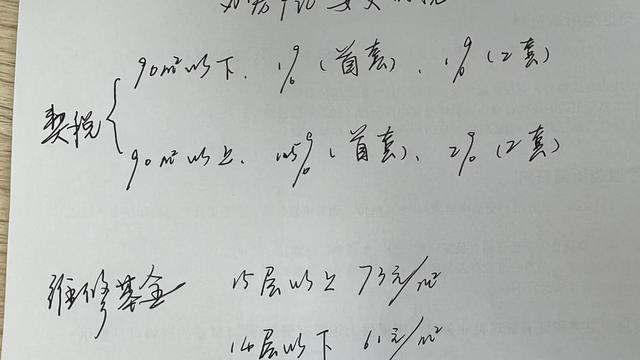 90m²以下. 1%(首套)、1%(2套)
契税
90m²以上. 1.5%(首套)、2%(2套)
维修基金 15层以上 73元/m²
14层以下 61元/m²